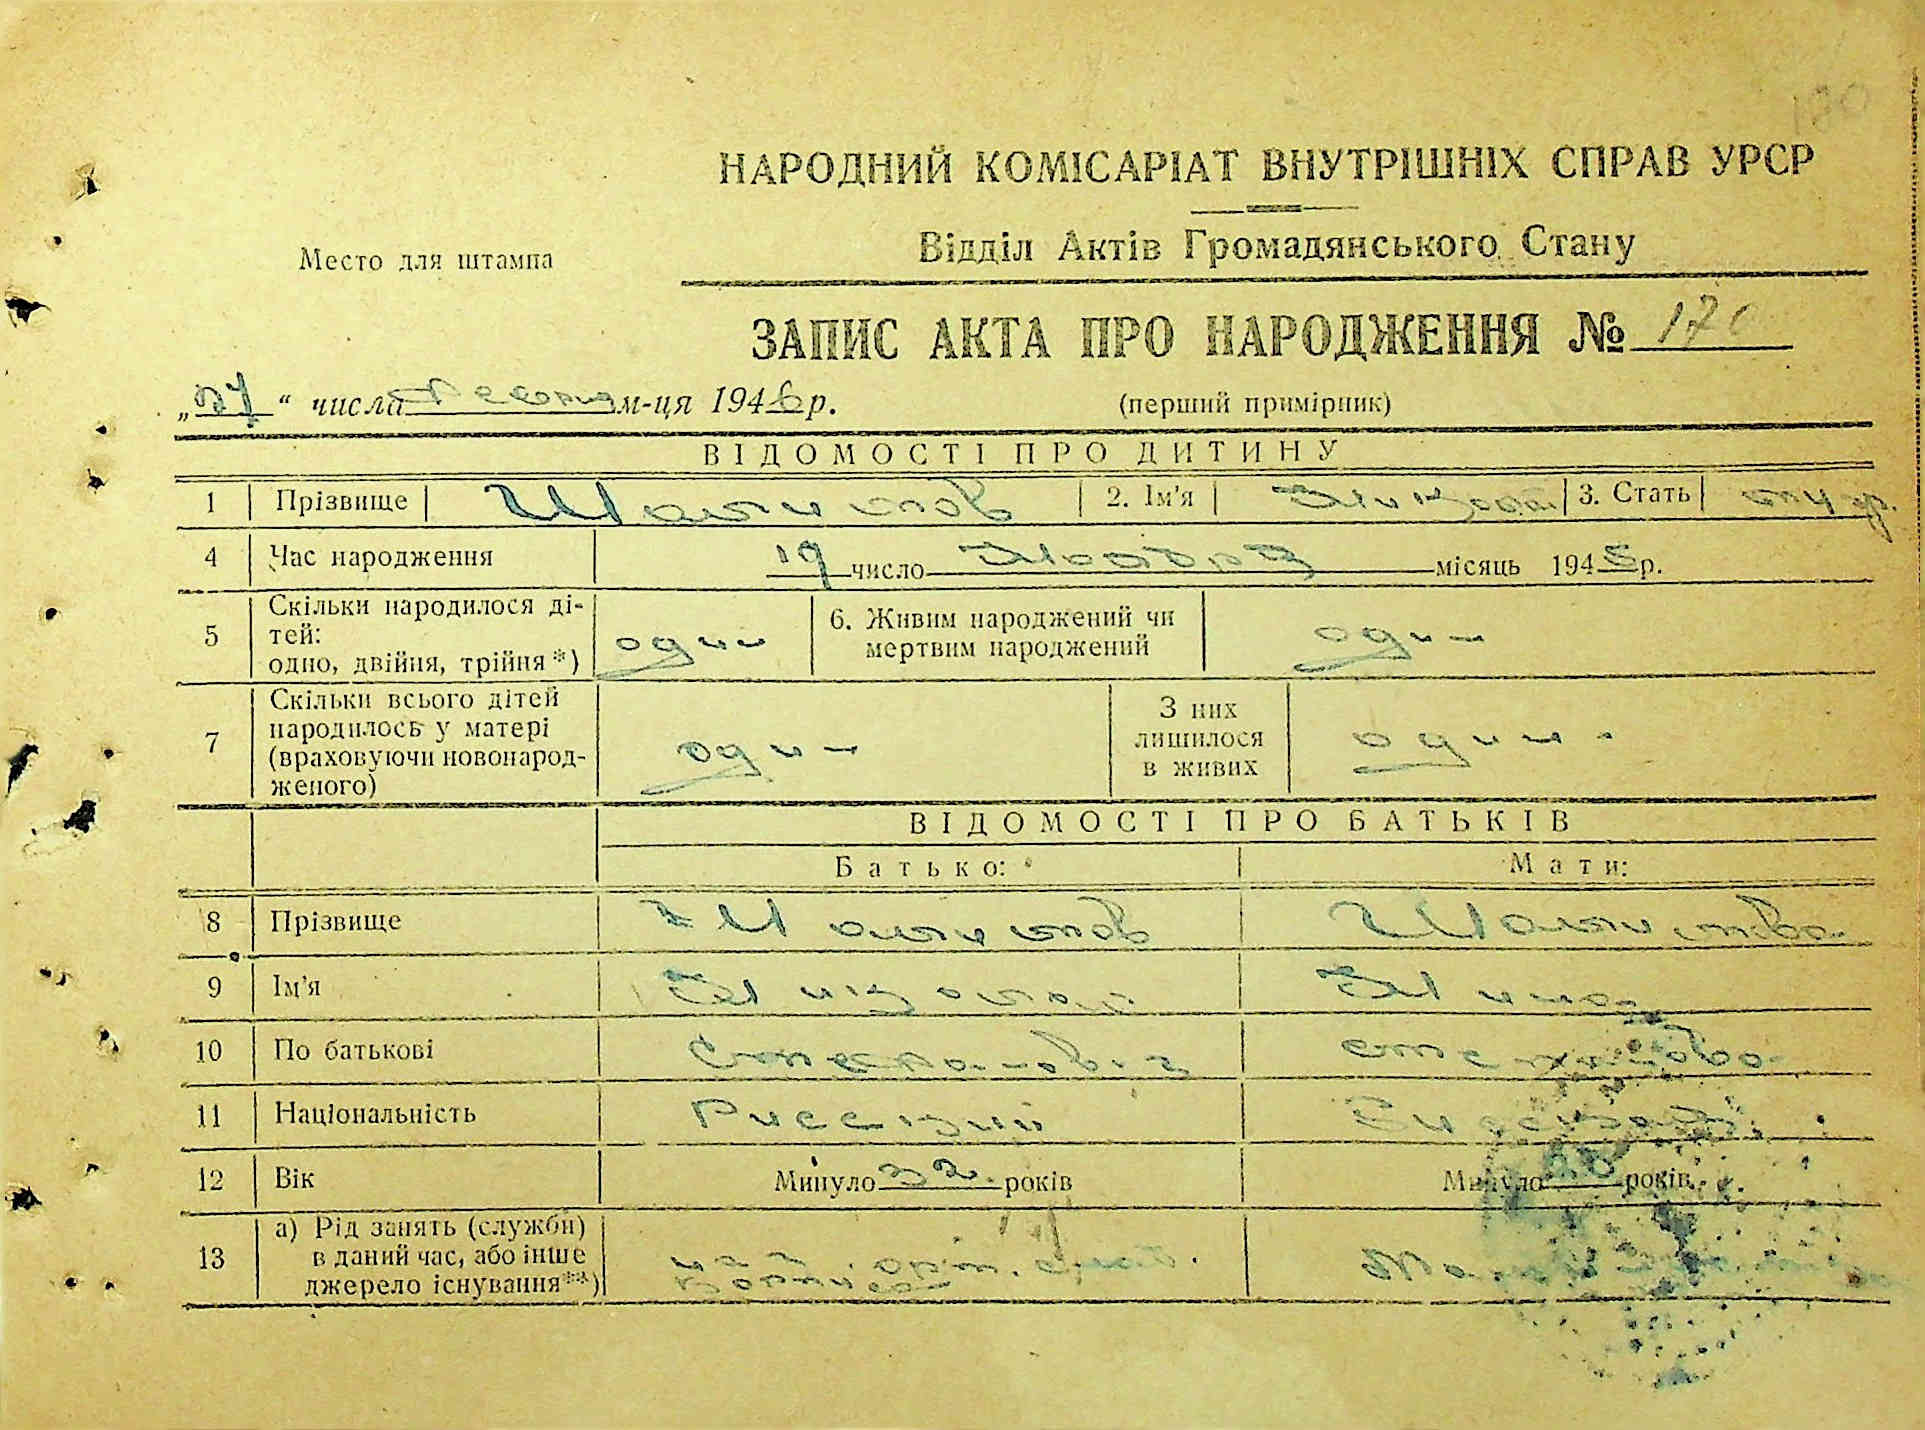 НАРОДНИЙ КОМІСАРІАТ ВНУТРІШНІХ СПРАВ УРСР
Место для штампа
Відділ Актів Громадянського Стану
ЗАПИС АКТА ПРО НАРОДЖЕННЯ № 170
„27“ числа м-ця 1946 р.
(перший примірник)
ВІДОМОСТІ ПРО ДИТИНУ
1 Прізвище 2. Ім'я 3. Стать
4 Час народження 19 число Ноября місяць 1945 р.
5 Скільки народилося ді-
тей:
одно, двійня, трійня*) один
6. Живим народжений чи
мертвим народжений один
7 Скільки всього дітей
народилось у матері
(враховуючи новонарод-
женого) один
З них
лишилося
в живих один
ВІДОМОСТІ ПРО БАТЬКІВ
Батько: Мати:
8 Прізвище
9 Ім'я Николай Нина
10 По батькові Степанович
11 Національність Русский
12 Вік Минуло 32 років Минуло років
13 а) Рід занять (служби)
в даний час, або інше
джерело існування**)